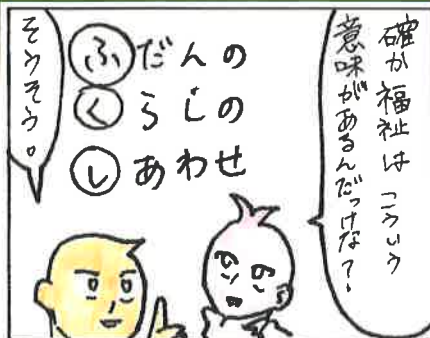 確か福祉はこういう
意味があるんだっけな？
ふだんの
くらしの
しあわせ
そうそう。